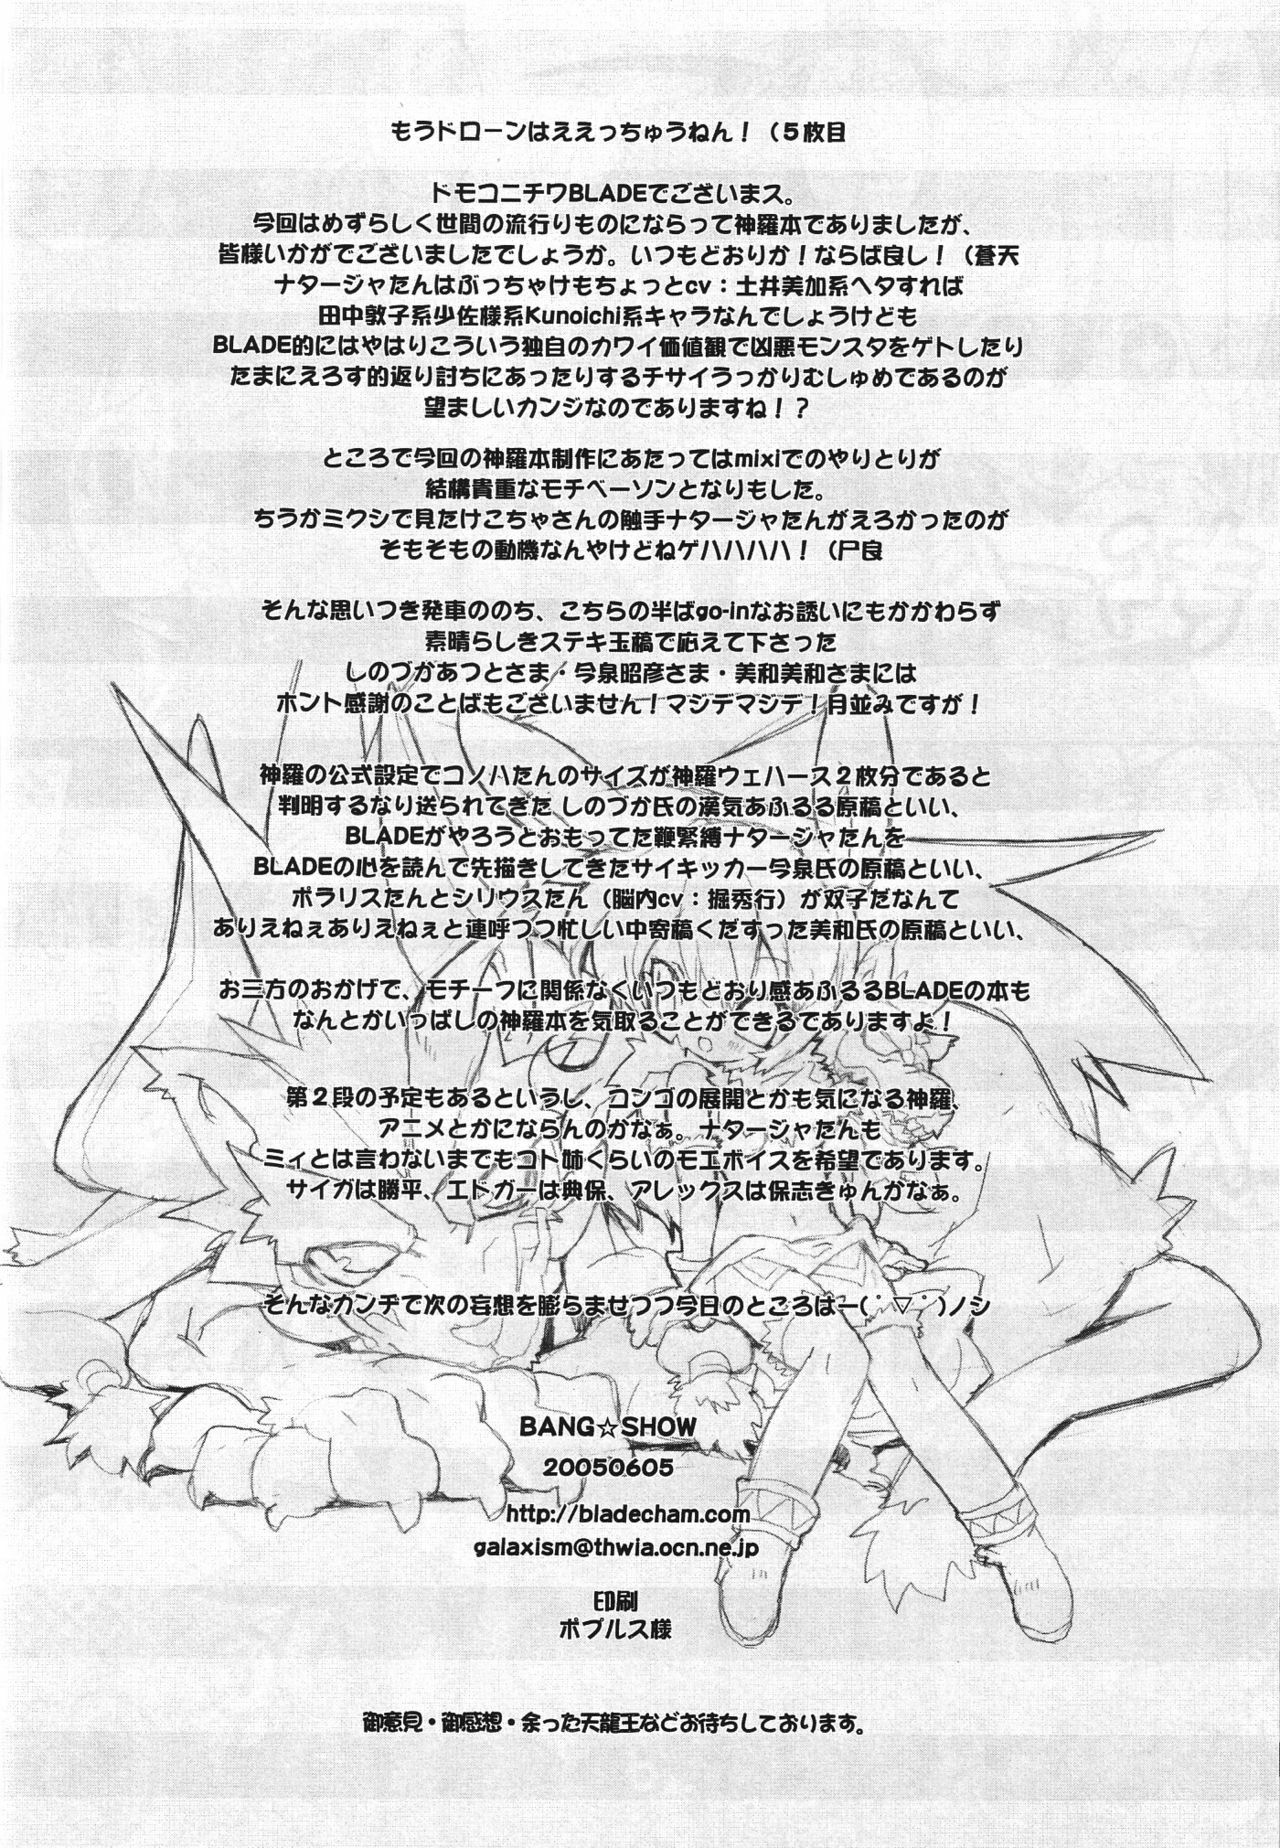 もうドローンはええっちゅうねん！（５枚目
ドモコニチワBLADEでございまス。
今回はめずらしく世間の流行りものにならって神羅本でありましたが、
皆様いかがでございましたでしょうか。いつもどおりか！ならば良し！（蒼天
ナタージャたんはぶっちゃけもちょっとcv：土井美加系ヘタすれば
田中敦子系少佐様系Kunoichi系キャラなんでしょうけども
BLADE的にはやはりこういう独自のカワイ価値観で凶悪モンスタをゲトしたり
たまにえろす的返り討ちにあったりするチサイうっかりむしゅめであるのが
望ましいカンジなのでありますね！？
ところで今回の神羅本制作にあたってはmixiでのやりとりが
結構貴重なモチベーソンとなりもした。
ちうかミクシで見たけこちゃさんの触手ナタージャたんがえろかったのが
そもそもの動機なんやけどねゲハハハハ！（尸良
そんな思いつき発車ののち、こちらの半ばgo-inなお誘いにもかかわらず
素晴らしきステキ玉稿で応えて下さった
しのづかあつとさま・今泉昭彦さま・美和美和さまには
ホント感謝のことばもございません！マジデマジデ！月並みですが！
神羅の公式設定でコノハたんのサイズが神羅ウェハース２枚分であると
判明するなり送られてきた しのづか氏の漢気あふるる原稿といい、
BLADEがやろうとおもってた鞭緊縛ナタージャたんを
BLADEの心を読んで先描きしてきたサイキッカー今泉氏の原稿といい、
ポラリスたんとシリウスたん（脳内cv：堀秀行）が双子だなんて
ありえねぇありえねぇと連呼つつ忙しい中寄稿くだすった美和氏の原稿といい、
お三方のおかげで、モチーフに関係なくいつもどおり感あふるるBLADEの本も
なんとかいっぱしの神羅本を気取ることができるでありますよ！
第２段の予定もあるというし、コンゴの展開とかも気になる神羅、
アニメとかにならんのかなぁ。ナタージャたんも
ミィとは言わないまでもコト姉くらいのモエボイスを希望であります。
サイガは勝平、エドガーは典保、アレックスは保志きゅんかなぁ。
そんなカンヂで次の妄想を膨らませつつ今日のところはー(˙▽˙)ノシ
BANG☆SHOW
20050605
http://bladecham.com
galaxism@thwia.ocn.ne.jp
印刷
ポプルス様
御意見・御感想・余った天龍王などお待ちしております。